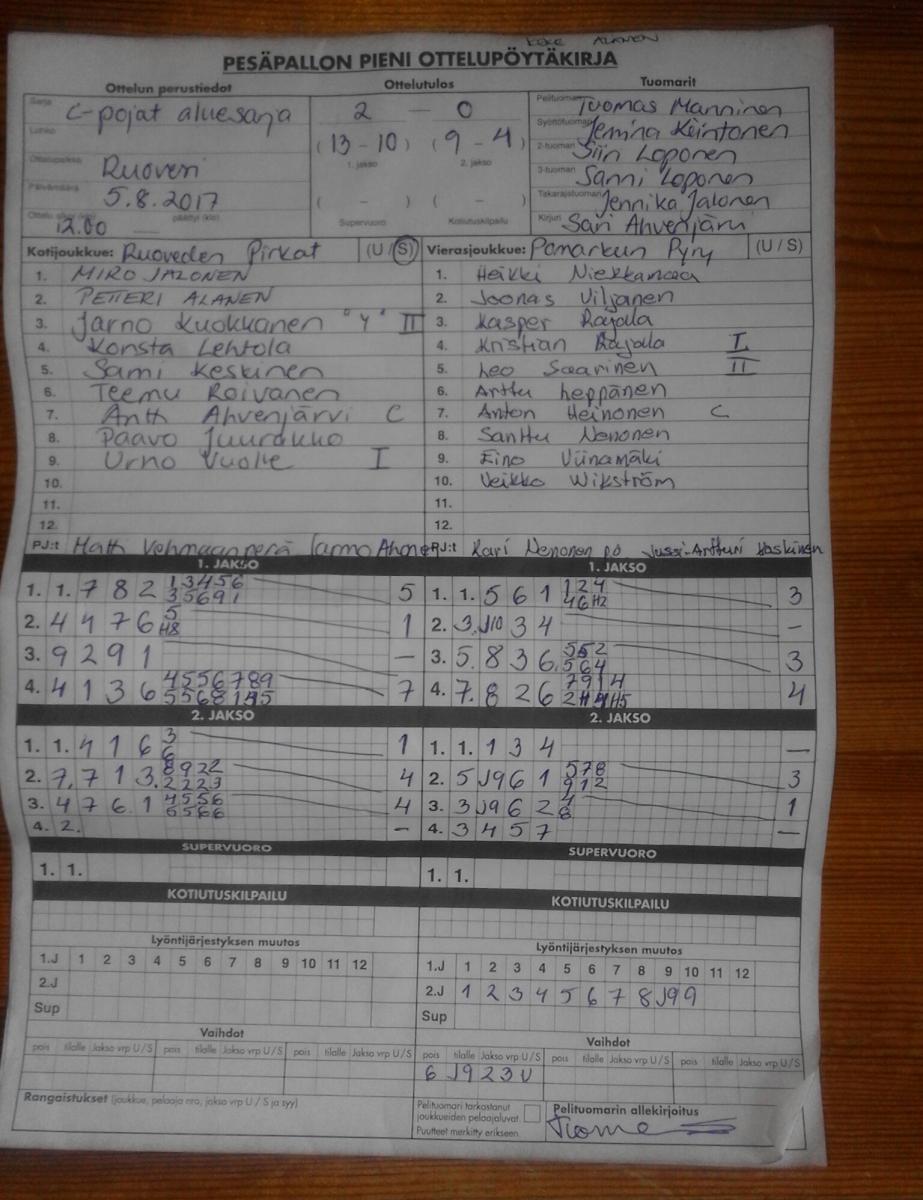 ALANEN
PESÄPALLON PIENI OTTELUPÖYTÄKIRJA
Ottelun perustiedot Ottelutulos Tuomarit
Sarja C-pojat aluesarja
Lohko
Ottelupaikka Ruovesi
Päivämäärä 5.8.2017
Ottelu alkoi (klo) 12.00 päättyi (klo)
2 — 0
(13-10) (9-4)
1. jakso 2. jakso
( - ) ( - )
Supervuoro Kotiutuskilpailu
Pelituomari Tuomas Manninen
Syöttötuomari Jemina Keintonen
2-tuomari Siin Loponen
3-tuomari Sanni Loponen
Takarajatuomari Jennika Jalonen
Kirjuri Sari Ahvenjärvi
Kotijoukkue: Ruoveden Pirkat (U/S)
1. MIRO JALONEN
2. PETTERI ALANEN
3. Jarno Kuokkanen "Y" II
4. Konsta Lehtola
5. Sami Keskinen
6. Teemu Roivanen
7. Antti Ahvenjärvi C
8. Paavo Juurakko
9. Urho Vuolle I
10.
11.
12.
PJ:t Matti Vehmaanperä Jarmo Ahonen
Vierasjoukkue: Pomarkun Pyry (U/S)
1. Heikki Niekkamaa
2. Joonas Viljanen
3. Kasper Rajala
4. Kristian Rajala I
5. Leo Saarinen II
6. Arttu Leppänen
7. Anton Heinonen C
8. Santtu Nenonen
9. Eino Viinamäki
10. Veikko Wikström
11.
12.
PJ:t Kari Nenonen PÖ Jussi-Artturi Koskinen
1. JAKSO
1. 1. 7 8 2 13456 5
35691
2. 4 4 7 6 5 1
H8
3. 9 2 9 1 —
4. 4 1 3 6 4556789 7
2. JAKSO
1. 1. 4 1 6 3 1
6
2. 7, 7 1 3. 8922 4
2223
3. 4 7 6 1 4556 4
5566
4. 2. —
SUPERVUORO
1. 1.
KOTIUTUSKILPAILU
Lyöntijärjestyksen muutos
1.J 1 2 3 4 5 6 7 8 9 10 11 12
2.J
Sup
Vaihdot
pois tilalle Jakso vrp U/S pois tilalle Jakso vrp U/S pois tilalle Jakso vrp U/S
Rangaistukset (joukkue, pelaaja nro, jakso vrp U / S ja syy)
1. JAKSO
1. 1. 5 6 1 124 3
46H2
2. 3. J10 3 4 —
3. 5. 8 3 6. 552 3
564
4. 7. 8 2 6 7914 4
2. JAKSO
1. 1. 1 3 4 —
2. 5 J9 6 1 578 3
912
3. 3 J9 6 2 4 1
8
4. 3 4 5 7 —
SUPERVUORO
1. 1.
KOTIUTUSKILPAILU
Lyöntijärjestyksen muutos
1.J 1 2 3 4 5 6 7 8 9 10 11 12
2.J 1 2 3 4 5 6 7 8 J9 9
Sup
Vaihdot
pois tilalle Jakso vrp U/S pois tilalle Jakso vrp U/S pois tilalle Jakso vrp U/S
6 J9 2 3 U
Pelituomari tarkastanut
joukkueiden pelaajaluvat.
Puutteet merkitty erikseen.
Pelituomarin allekirjoitus